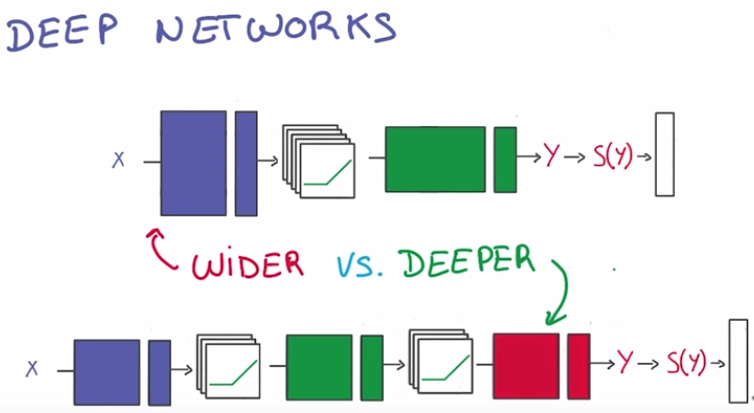 DEEP NETWORKS
X Y S(Y)
WIDER VS. DEEPER
X Y S(Y)